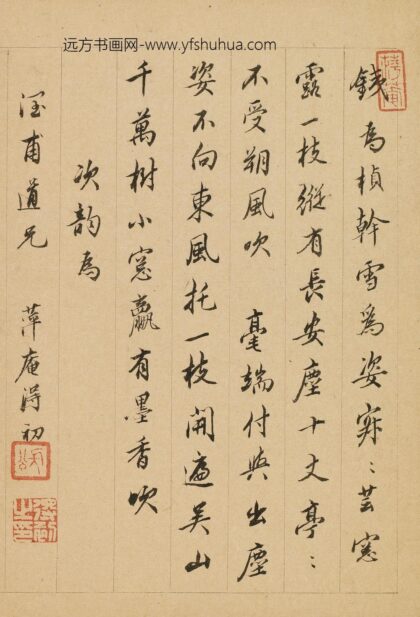 远方书画网-www.yfshuhua.com
鐵為楨幹雪為姿寂〻芸窓
露一枝縱有長安塵十丈亭〻
不受朔風吹 毫端付與出塵
姿不向東風托一枝開遍吳山
千萬樹小窓贏有墨香吹
次韵為
道兄 萍庵得初